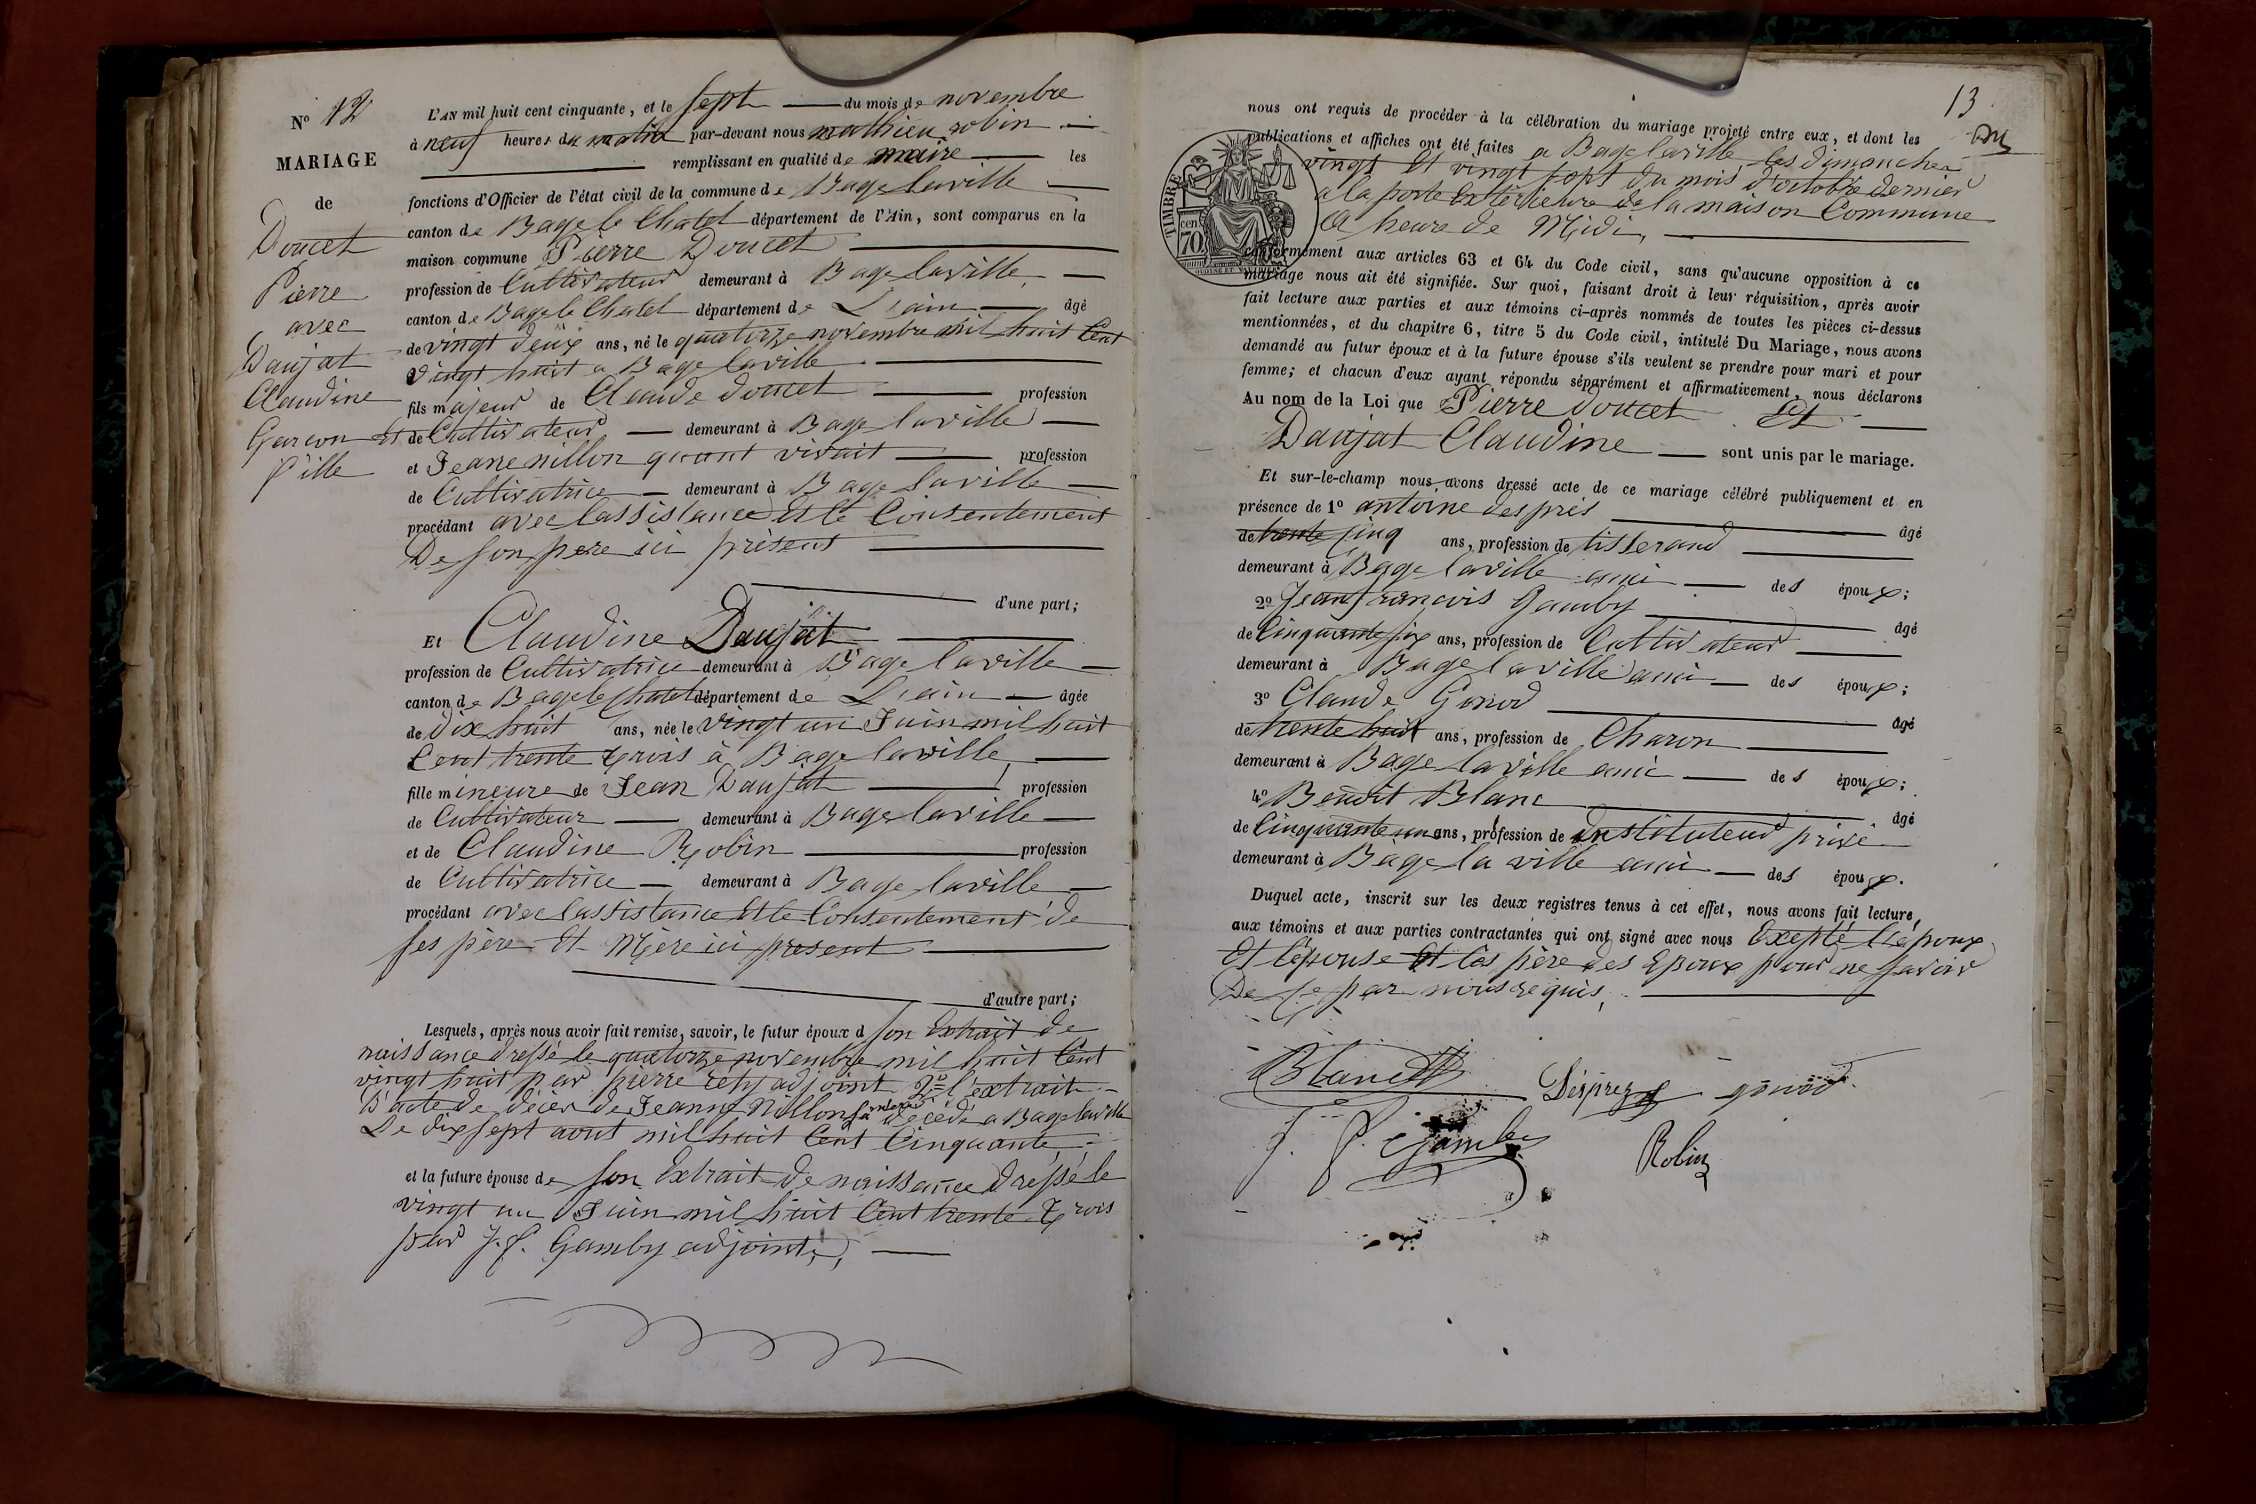 N° 12
MARIAGE
de
Doucet
Pierre
avec
Daujat
Claudine
Garcon et
fille
L'AN mil huit cent cinquante, et le sept du mois de novembre
à neuf heures du matin par-devant nous mathieu robin
remplissant en qualité de maire les
fonctions d'Officier de l'état civil de la commune de Bage laville
canton de Bage le Chatel département de l'Ain, sont comparus en la
maison commune Pierre Doucet
profession de Cultivateur demeurant à Bage laville
canton de Bage le Chatel département de L'ain âgé
de vingt deux ans, né le quatorze novembre mil huit Cent
vingt huit a Bage laville
fils majeur de Claude doucet profession
de Cultivateur demeurant à Bage laville
et Jeane nillon quant vivait profession
de Cultivatrice demeurant à Bage laville
procédant avec lassistance et le Consentement
De son pere ici présent
d'une part;
Et Claudine Daujat
profession de Cultivatrice demeurant à Bage laville
canton de Bage le Chatel département de L'ain âgée
de Dix huit ans, née le vingt un Juin mil huit
Cent trente trois à Bage laville
fille mineure de Jean Daujat profession
de Cultivateur demeurant à Bage laville
et de Claudine Robin profession
de Cultivatrice demeurant à Bage laville
procédant avec lassistance et le Consentement de
ses père et Mère ici present
d'autre part;
Lesquels, après nous avoir fait remise, savoir, le futur époux d son Extrait de
naissance dressé le quatorze novembre mil huit Cent
vingt huit par pierre adjoint 2° l'extrait
D'acte de décès de Jeanne Nillon sa mère décédé a Bage laville
Le dix sept aout mil huit Cent Cinquante
et la future épouse de son Extrait de naissance dressé le
vingt un Juin mil huit Cent trente trois
par J. f. Gamby adjoint,
13
nous ont requis de procéder à la célébration du mariage projeté entre eux, et dont les
publications et affiches ont été faites a Bage laville les dimanches
vingt et vingt sept du mois d'octobre dernier
a la porte Extérieure de la maison Commune
a heure de Midi,
TIMBRE
70 cen
conformément aux articles 63 et 64 du Code civil, sans qu'aucune opposition à ce
mariage nous ait été signifiée. Sur quoi, faisant droit à leur réquisition, après avoir
fait lecture aux parties et aux témoins ci-après nommés de toutes les pièces ci-dessus
mentionnées, et du chapitre 6, titre 5 du Code civil, intitulé Du Mariage, nous avons
demandé au futur époux et à la future épouse s'ils veulent se prendre pour mari et pour
femme; et chacun d'eux ayant répondu séparément et affirmativement, nous déclarons
Au nom de la Loi que Pierre doucet Et
Daujat Claudine sont unis par le mariage.
Et sur-le-champ nous avons dressé acte de ce mariage célébré publiquement et en
présence de 1° antoine desprès âgé
de trente cinq ans, profession de tisserand
demeurant à Bage laville ami des époux;
2° Jean francois Gamby âgé
de Cinquante six ans, profession de Cultivateur
demeurant à Bage laville ami des époux;
3° Claude Gonod âgé
de trente huit ans, profession de Charon
demeurant à Bage laville ami des époux;
4° Benoit Blanc âgé
de Cinquante un ans, profession de Instituteur privé
demeurant à Bage la ville ami des époux.
Duquel acte, inscrit sur les deux registres tenus à cet effet, nous avons fait lecture,
aux témoins et aux parties contractantes qui ont signé avec nous Excepté l'époux
et l'épouse et les père des Epoux pour ne savoir
De ce par nous requis,
Blanc Desprez gonod
J. f. Gamby Robin